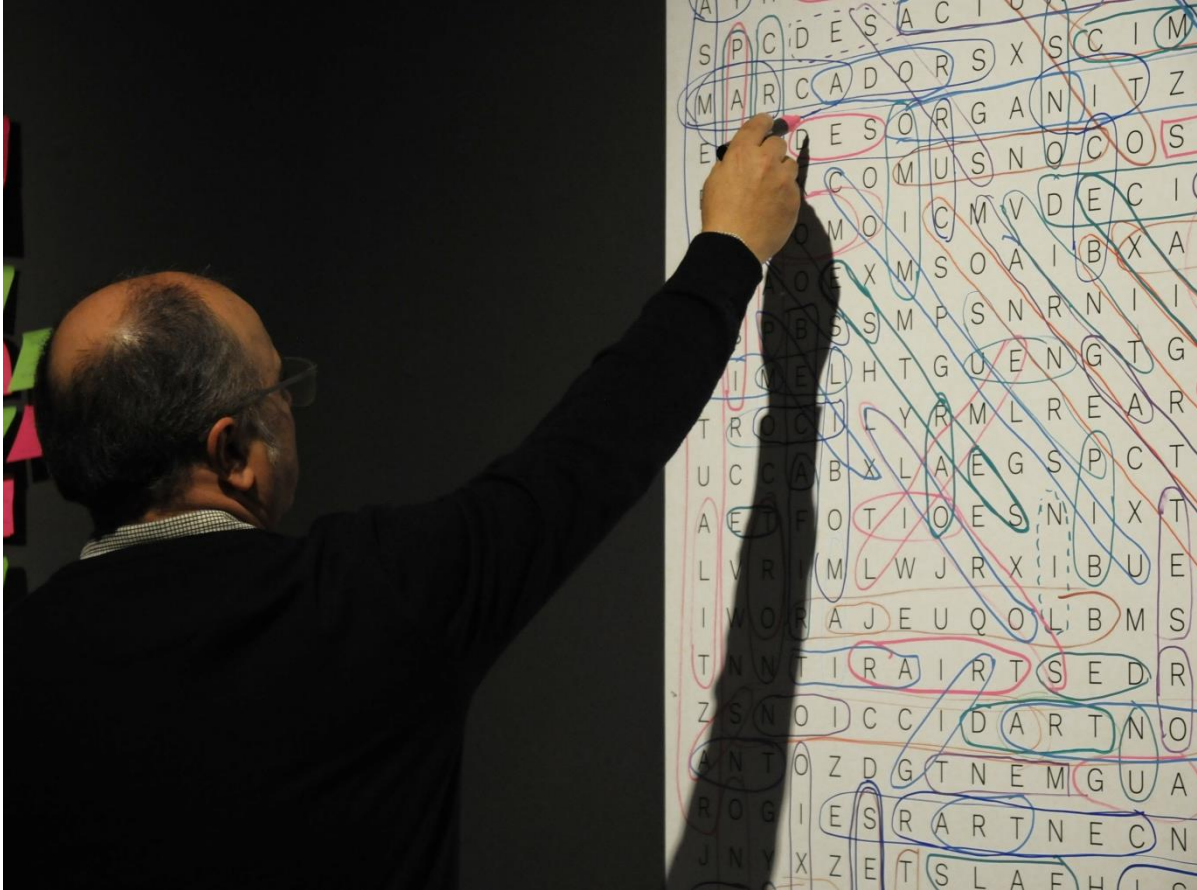 D E S A C I
S P C D E S A C I
M A R C A D O R S X S C I M
D E S O R G A N I T Z
C O M U S N O C O S
O M O I C M V D E C I
O E X M S O A I B X A
P B S S M P S N R N I I
I M E L H T G U E N G T G
T R O C I L Y R M L R E A R
U C C A B X L A E G S P C T
A E T F O T I O E S N I X T
L V R I M L W J R X I B U E
I W O R A J E U Q O L B M S
T N N T I R A I R T S E D R
Z S N O I C C I D A R T N O
A N T O Z D G T N E M G U A
R O G I E S R A R T N E C N
J N Y X Z E T S L A F H I S